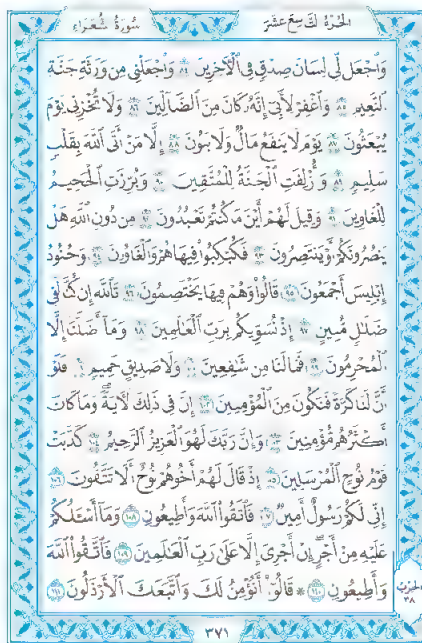 سُورَةُ شُعَرَاء الجُزءُ التَّاسِعَ عَشَرَ
وَاجْعَل لِّي لِسَانَ صِدْقٍ فِي الْآخِرِينَ ٨٤ وَاجْعَلْنِي مِن وَرَثَةِ جَنَّةِ
النَّعِيمِ ٨٥ وَاغْفِرْ لِأَبِي إِنَّهُ كَانَ مِنَ الضَّالِّينَ ٨٦ وَلَا تُخْزِنِي يَوْمَ
يُبْعَثُونَ ٨٧ يَوْمَ لَا يَنفَعُ مَالٌ وَلَا بَنُونَ ٨٨ إِلَّا مَنْ أَتَى اللَّهَ بِقَلْبٍ
سَلِيمٍ ٨٩ وَأُزْلِفَتِ الْجَنَّةُ لِلْمُتَّقِينَ ٩٠ وَبُرِّزَتِ الْجَحِيمُ
لِلْغَاوِينَ ٩١ وَقِيلَ لَهُمْ أَيْنَ مَا كُنتُمْ تَعْبُدُونَ ٩٢ مِن دُونِ اللَّهِ هَلْ
يَنصُرُونَكُمْ أَوْ يَنتَصِرُونَ ٩٣ فَكُبْكِبُوا فِيهَا هُمْ وَالْغَاوُونَ ٩٤ وَجُنُودُ
إِبْلِيسَ أَجْمَعُونَ ٩٥ قَالُوا وَهُمْ فِيهَا يَخْتَصِمُونَ ٩٦ تَاللَّهِ إِن كُنَّا لَفِي
ضَلَالٍ مُّبِينٍ ٩٧ إِذْ نُسَوِّيكُم بِرَبِّ الْعَالَمِينَ ٩٨ وَمَا أَضَلَّنَا إِلَّا
الْمُجْرِمُونَ ٩٩ فَمَا لَنَا مِن شَافِعِينَ ١٠٠ وَلَا صَدِيقٍ حَمِيمٍ ١٠١ فَلَوْ
أَنَّ لَنَا كَرَّةً فَنَكُونَ مِنَ الْمُؤْمِنِينَ ١٠٢ إِنَّ فِي ذَٰلِكَ لَآيَةً وَمَا كَانَ
أَكْثَرُهُم مُّؤْمِنِينَ ١٠٣ وَإِنَّ رَبَّكَ لَهُوَ الْعَزِيزُ الرَّحِيمُ ١٠٤ كَذَّبَتْ
قَوْمُ نُوحٍ الْمُرْسَلِينَ ١٠٥ إِذْ قَالَ لَهُمْ أَخُوهُمْ نُوحٌ أَلَا تَتَّقُونَ ١٠٦
إِنِّي لَكُمْ رَسُولٌ أَمِينٌ ١٠٧ فَاتَّقُوا اللَّهَ وَأَطِيعُونِ ١٠٨ وَمَا أَسْأَلُكُمْ
عَلَيْهِ مِنْ أَجْرٍ إِنْ أَجْرِيَ إِلَّا عَلَىٰ رَبِّ الْعَالَمِينَ ١٠٩ فَاتَّقُوا اللَّهَ
وَأَطِيعُونِ ١١٠ ۞ قَالُوا أَنُؤْمِنُ لَكَ وَاتَّبَعَكَ الْأَرْذَلُونَ ١١١
الحِزْب
٣٨
٣٧١